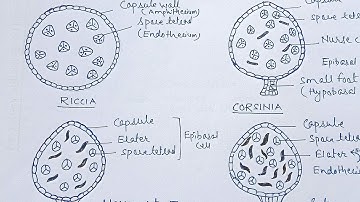 Capsule wall
(Amphithecium)
Spore tetrad
(Endothecium)
RICCIA
Capsule
Spore tetrad
Nurse c
Epibasal
Small foot
(Hypobasal
CORSINIA
Capsule
Elater
Spore tetrad
Epibasal
Cell
Capsule
Spore tetra
Elater
Endotheciu